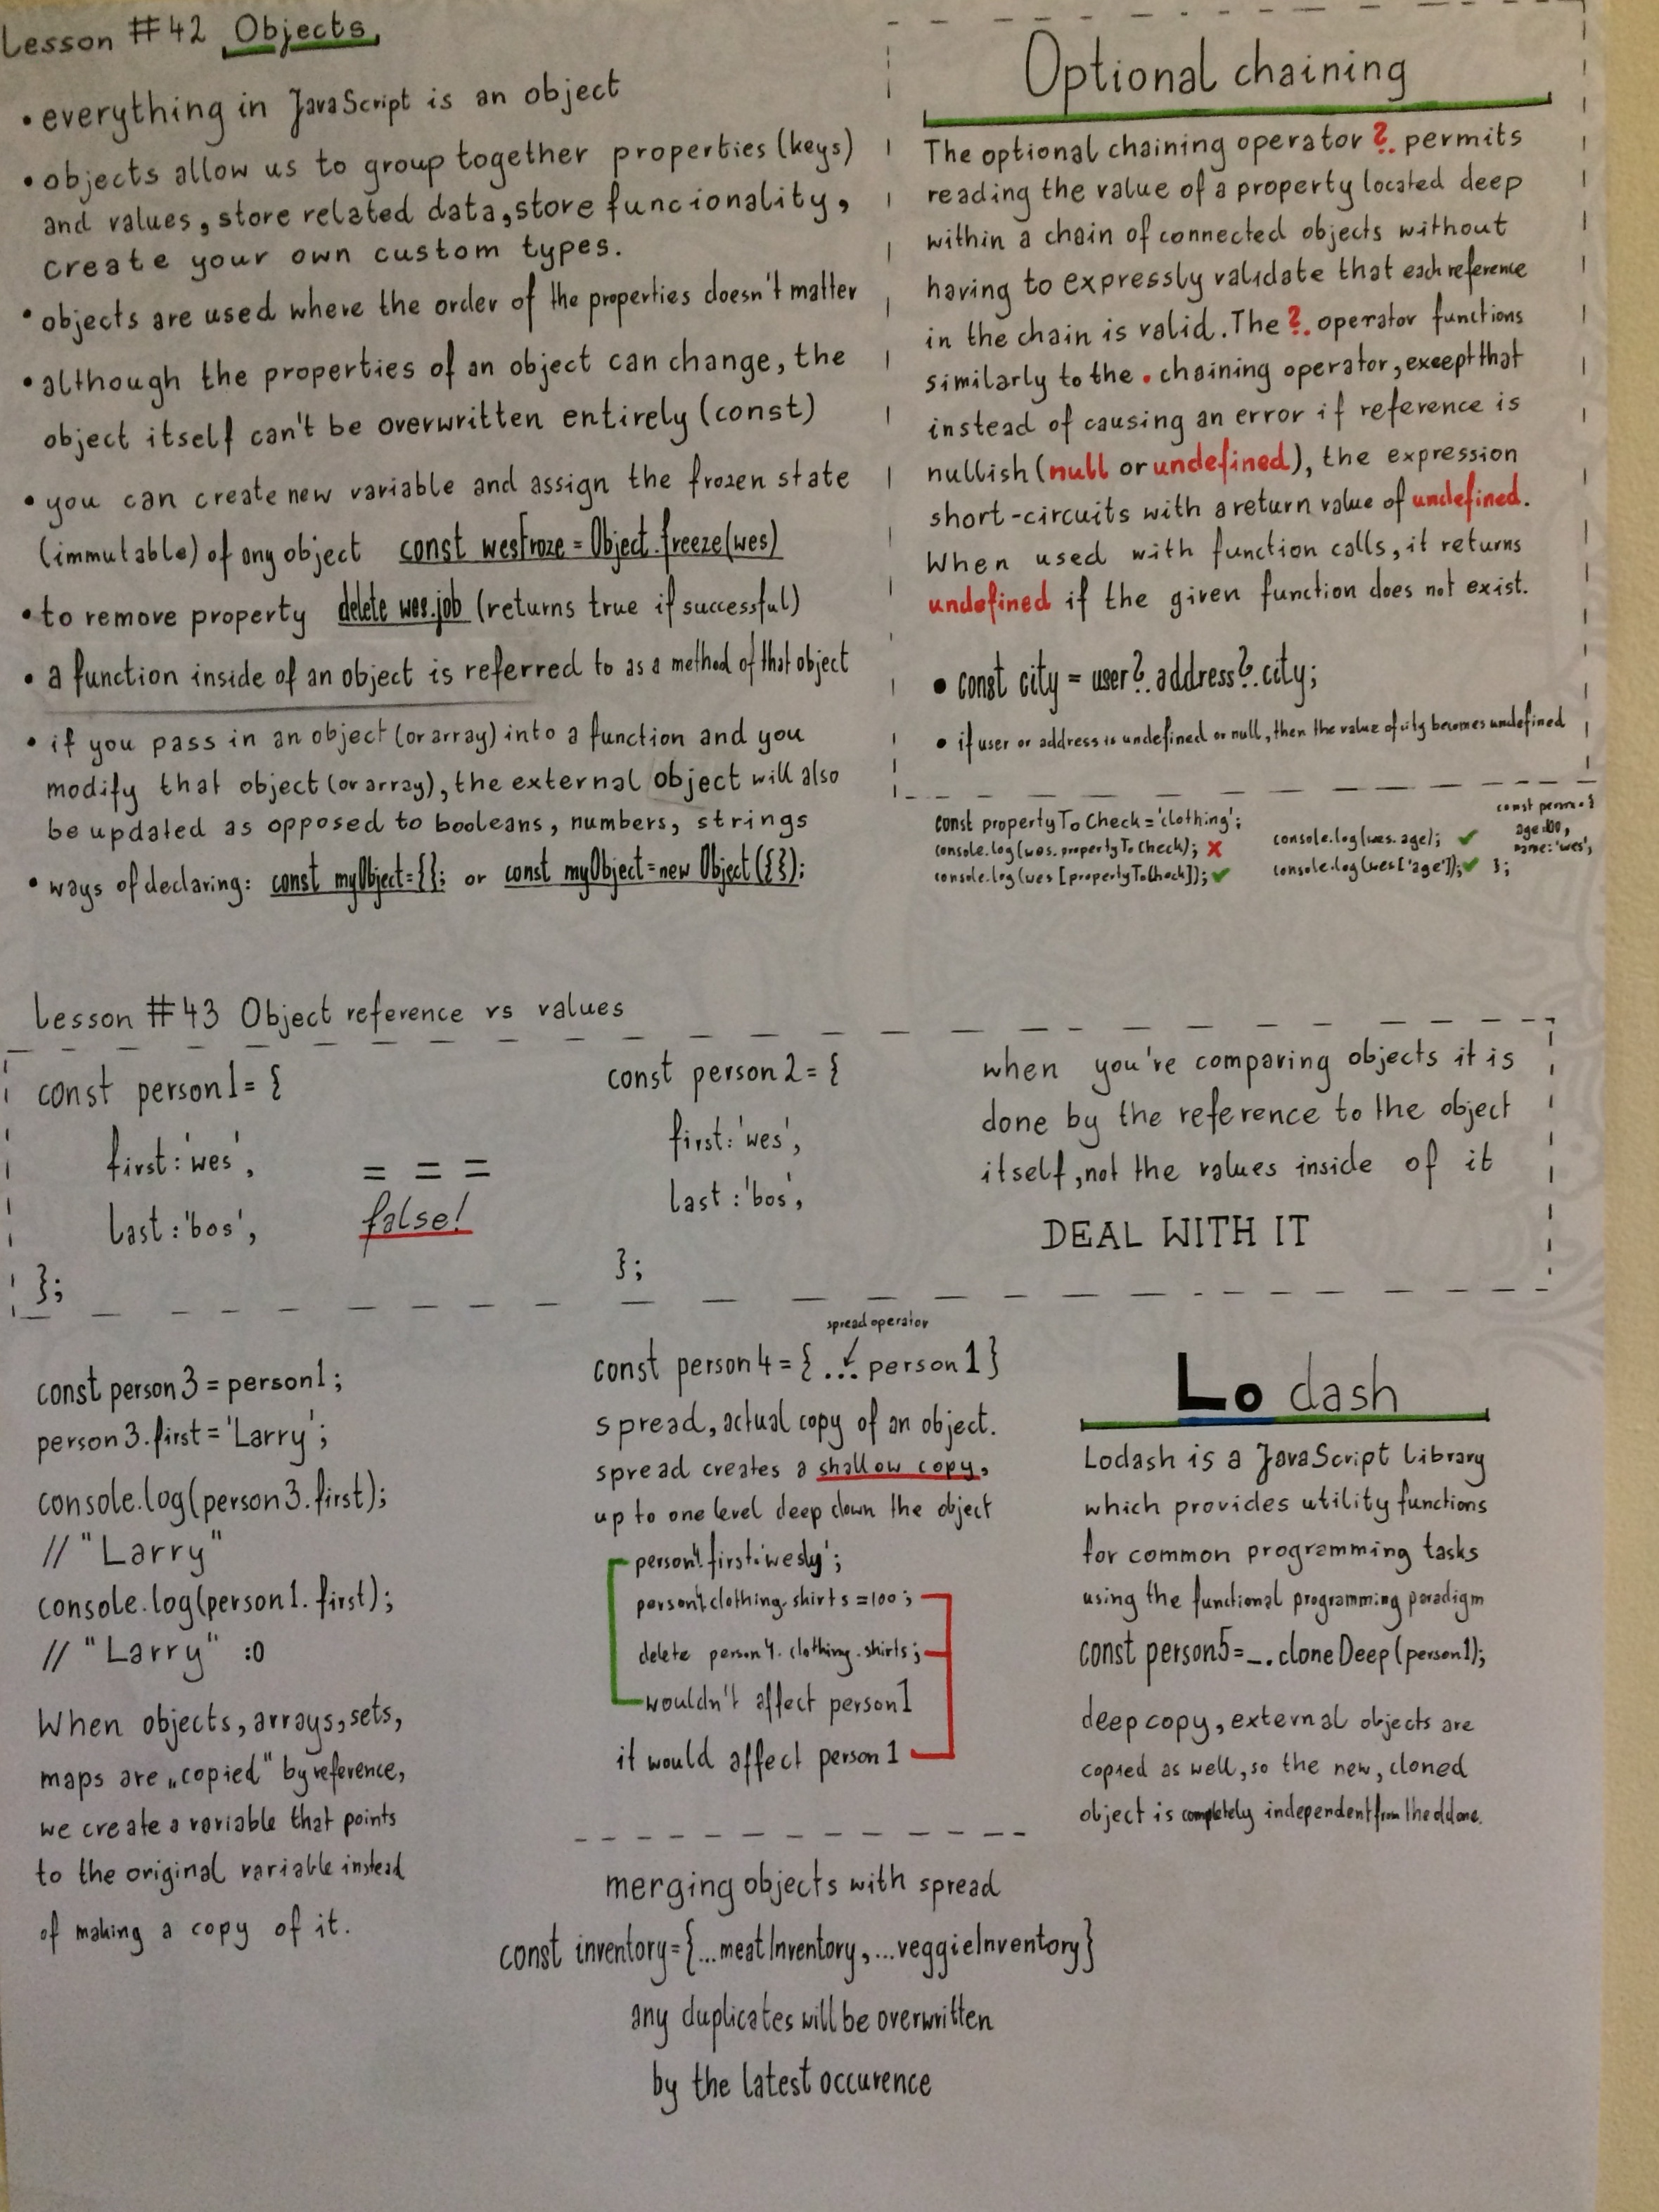 Lesson #42 Objects
• everything in JavaScript is an object
• objects allow us to group together properties (keys)
and values, store related data, store funcionality,
create your own custom types.
• objects are used where the order of the properties doesn't matter
• although the properties of an object can change, the
object itself can't be overwritten entirely (const)
• you can create new variable and assign the frozen state
(immutable) of any object const wesFroze = Object.freeze(wes)
• to remove property delete wes.job (returns true if successful)
• a function inside of an object is referred to as a method of that object
• if you pass in an object (or array) into a function and you
modify that object (or array), the external object will also
be updated as opposed to booleans, numbers, strings
• ways of declaring: const myObject={}; or const myObject=new Object({});
Optional chaining
The optional chaining operator ?. permits
reading the value of a property located deep
within a chain of connected objects without
having to expressly validate that each reference
in the chain is valid. The ?. operator functions
similarly to the . chaining operator, except that
instead of causing an error if reference is
nullish (null or undefined), the expression
short-circuits with a return value of undefined.
When used with function calls, it returns
undefined if the given function does not exist.
• const city = user?.address?.city;
• if user or address is undefined or null, then the value of city becomes undefined
const propertyToCheck='clothing';
console.log(wes.propertyToCheck); ✗
console.log(wes[propertyToCheck]); ✓
console.log(wes.age); ✓
console.log(wes['age']); ✓
const person={
age:100,
name:'wes',
};
Lesson #43 Object reference vs values
const person1= {
first:'wes',
last:'bos',
};
===
false!
const person2= {
first:'wes',
last:'bos',
};
when you're comparing objects it is
done by the reference to the object
itself, not the values inside of it
DEAL WITH IT
const person3 = person1;
person3.first='Larry';
console.log(person3.first);
// "Larry"
console.log(person1.first);
// "Larry" :O
When objects, arrays, sets,
maps are „copied" by reference,
we create a variable that points
to the original variable instead
of making a copy of it.
spread operator
const person4={...person1}
spread, actual copy of an object.
spread creates a shallow copy,
up to one level deep down the object
person4.first='wesly';
person4.clothing.shirts=100;
delete person4.clothing.shirts;
wouldn't affect person1
it would affect person1
merging objects with spread
const inventory={...meatInventory, ...veggieInventory}
any duplicates will be overwritten
by the latest occurence
Lodash
Lodash is a JavaScript library
which provides utility functions
for common programming tasks
using the functional programming paradigm
const person5=_.cloneDeep(person1);
deep copy, external objects are
copied as well, so the new, cloned
object is completely independent from the old one.